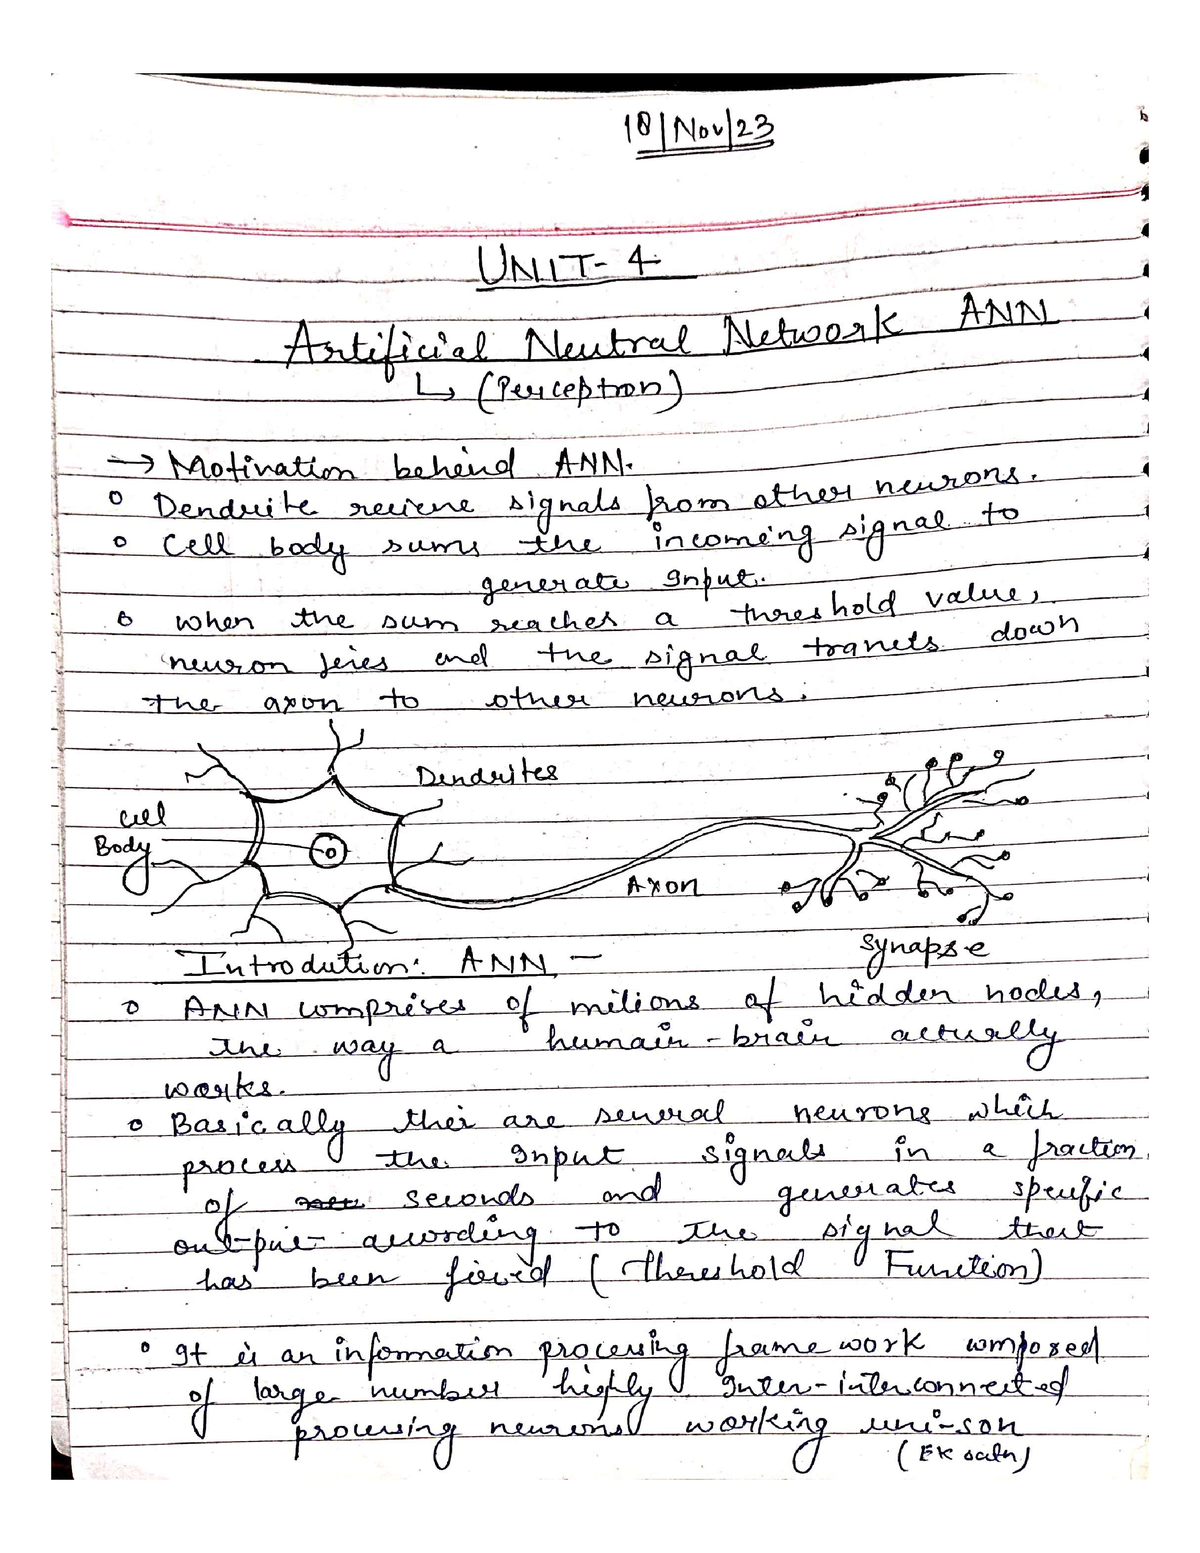 18/Nov/23
UNIT-4
Artificial Neutral Network ANN
↳ (Perceptron)
→ Motivation behind ANN.
o Dendrite recieve signals from other neurons.
o Cell body sums the incoming signal to
generate Input.
o when the sum reaches a threshold value,
neuron feies and the signal travels down
the axon to other neurons.
Dendrites
cell
Body
Axon
Synapse
Introdution: ANN -
o ANN comprises of milions of hidden nodes,
the way a human-brain actually
works.
o Basically their are several neurons which
process the Input signals in a fraction
of seconds and generates specific
output according to the signal that
has been fired (Threshold Function)
o It is an information processing frame work composed
of large number highly Inter-interconnected
processing neurons working uni-son
(EK sath)